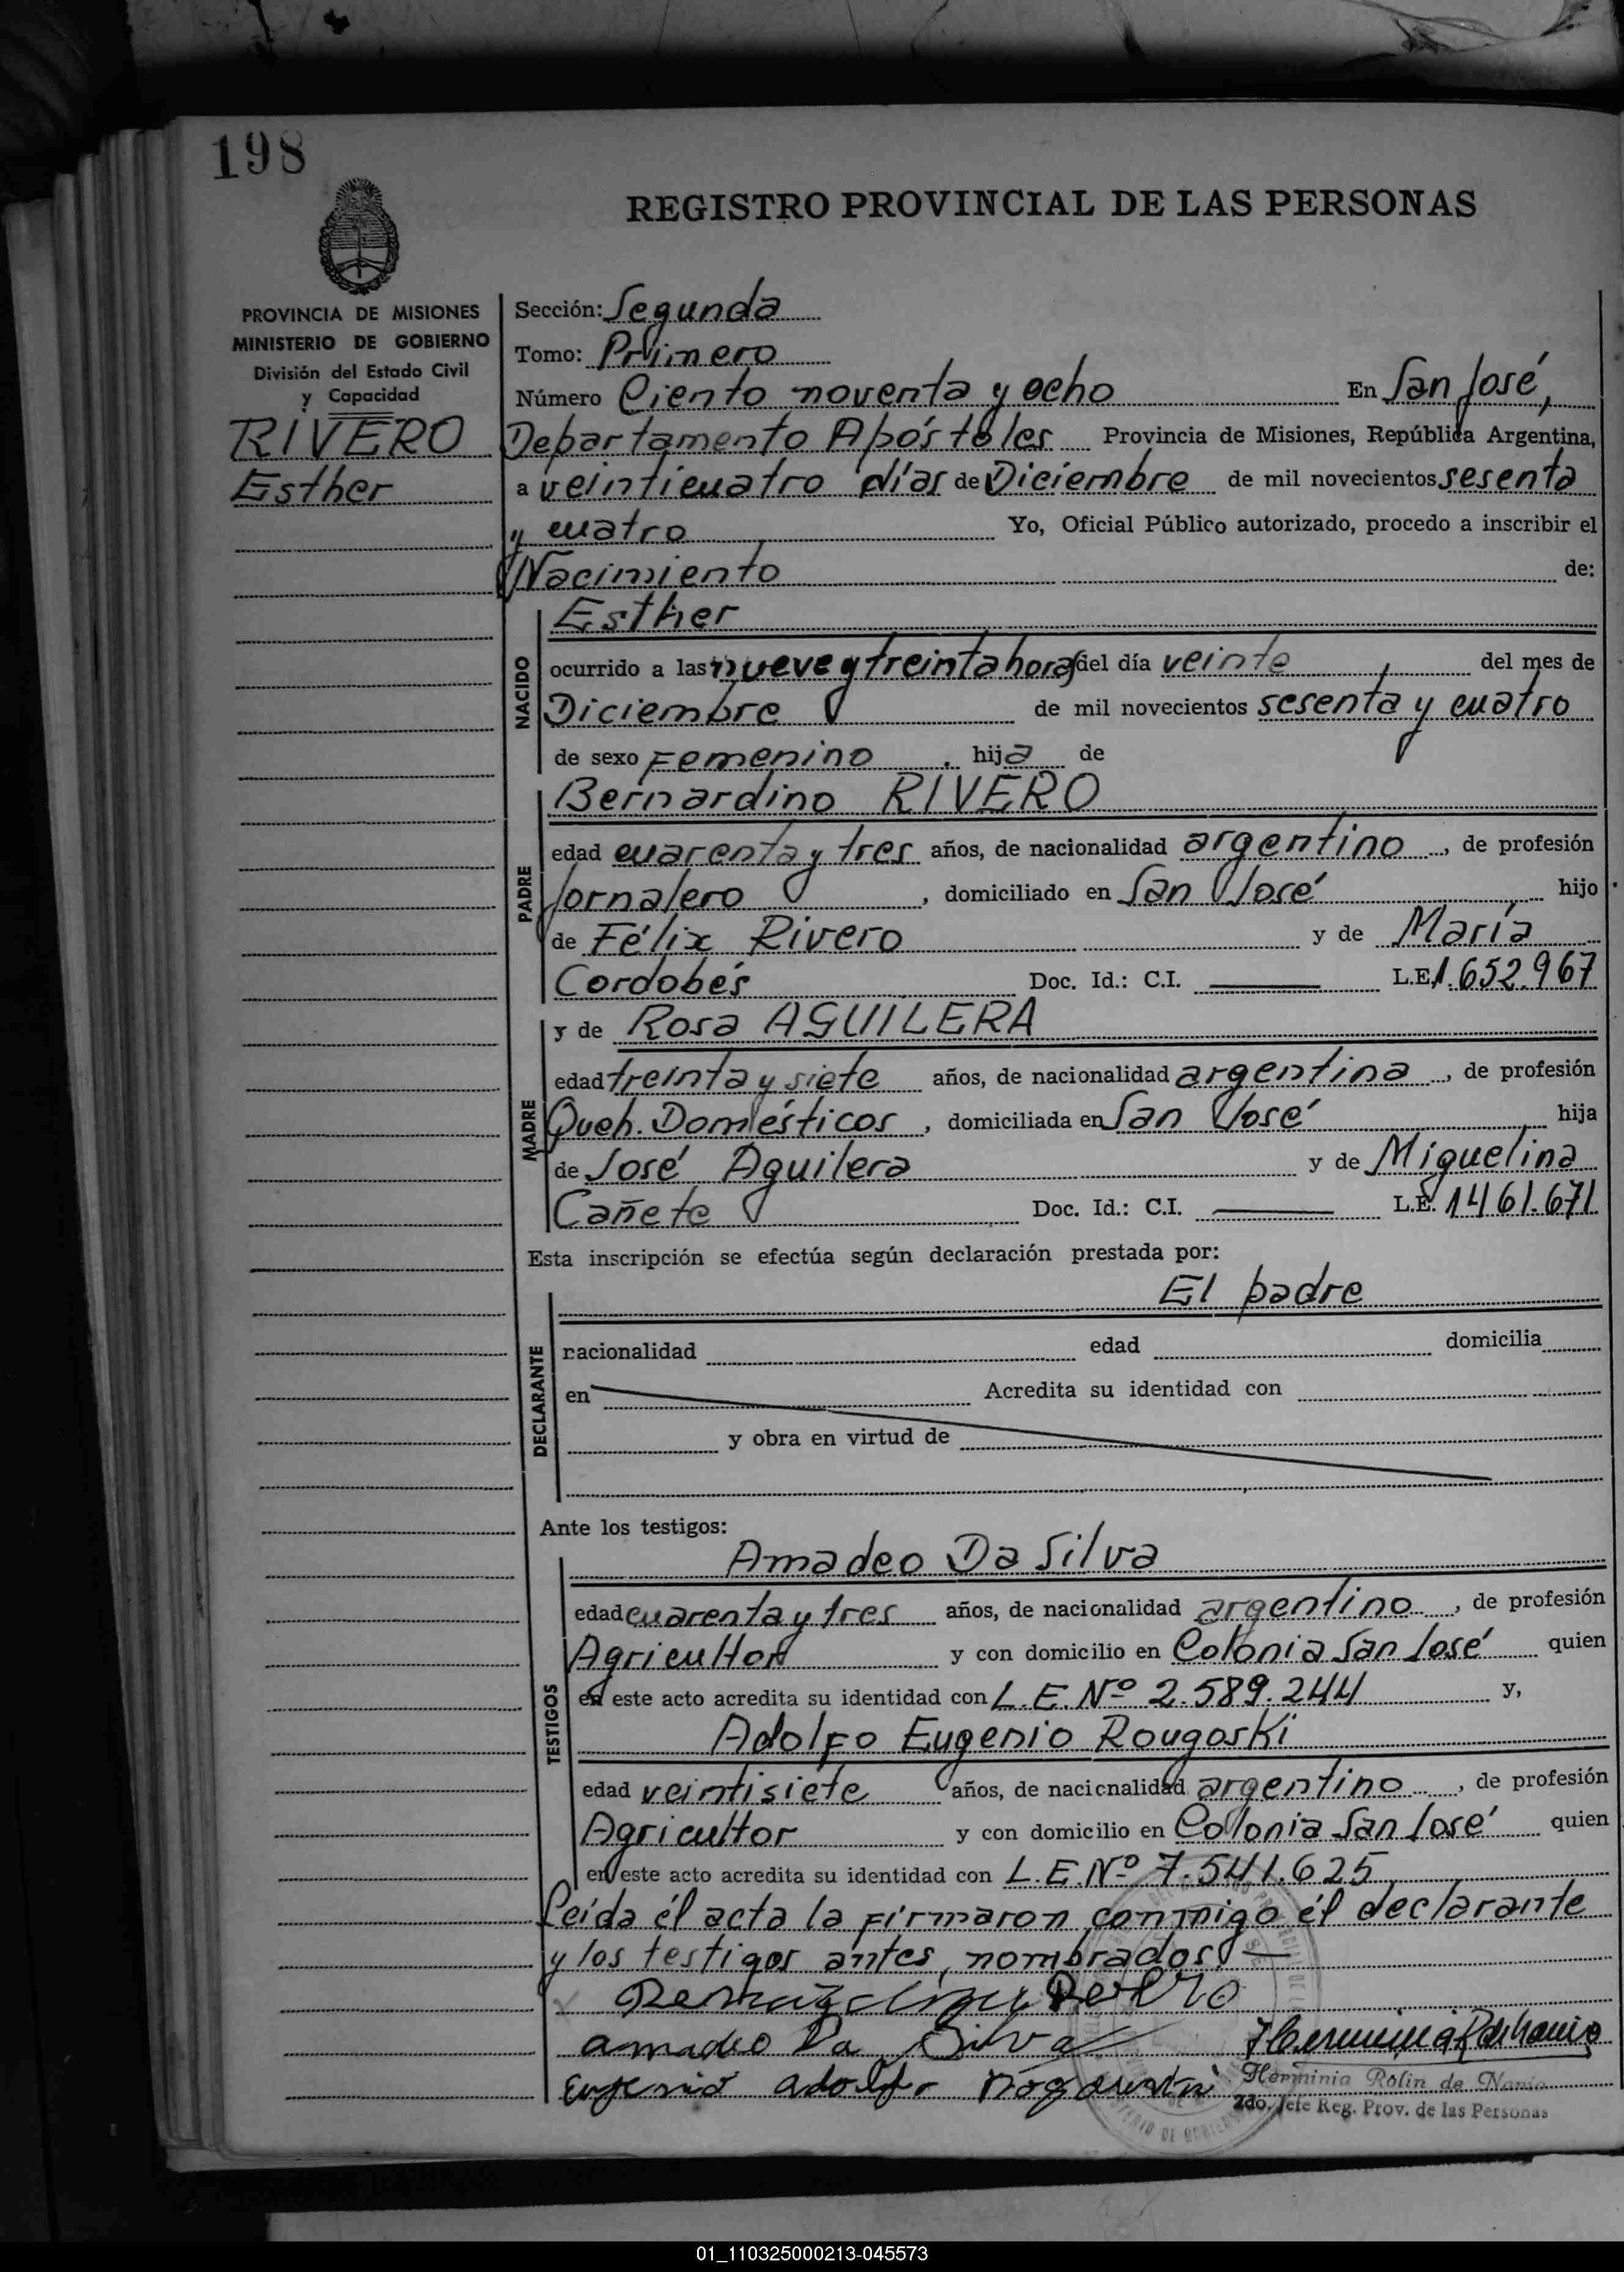 198
REGISTRO PROVINCIAL DE LAS PERSONAS
PROVINCIA DE MISIONES
MINISTERIO DE GOBIERNO
División del Estado Civil
y Capacidad
RIVERO
Esther
Sección: Segunda
Tomo: Primero
Número Ciento noventa y ocho En San José,
Departamento Apóstoles Provincia de Misiones, República Argentina,
a veinticuatro días de Diciembre de mil novecientos sesenta
y cuatro Yo, Oficial Público autorizado, procedo a inscribir el
Nacimiento de:
NACIDO
Esther
ocurrido a las nueve y treinta horas del día veinte del mes de
Diciembre de mil novecientos sesenta y cuatro
de sexo Femenino, hija de
PADRE
Bernardino RIVERO
edad cuarenta y tres años, de nacionalidad argentino, de profesión
Jornalero, domiciliado en San José hijo
de Félix Rivero y de María
Cordobés Doc. Id.: C.I. L.E. 1.652.967
MADRE
y de Rosa AGUILERA
edad treinta y siete años, de nacionalidad argentina, de profesión
Queh. Domésticos, domiciliada en San José hija
de José Aguilera y de Miguelina
Cañete Doc. Id.: C.I. L.E. 1461.671
Esta inscripción se efectúa según declaración prestada por:
DECLARANTE
El padre
nacionalidad edad domicilia
en Acredita su identidad con
y obra en virtud de
Ante los testigos:
TESTIGOS
Amadeo Da Silva
edad cuarenta y tres años, de nacionalidad argentino, de profesión
Agricultor y con domicilio en Colonia San José quien
en este acto acredita su identidad con L.E.Nº 2.589.244 y,
Adolfo Eugenio Rougoski
edad veintisiete años, de nacionalidad argentino, de profesión
Agricultor y con domicilio en Colonia San José quien
en este acto acredita su identidad con L.E.Nº 7.541.625
Leída él acta la firmaron conmigo él declarante
y los testigos antes nombrados.—
amadeo Da Silva
Eugenio adolfo
Herminia Rolin de Nania
2do. Jefe Reg. Prov. de las Personas
01_110325000213-045573